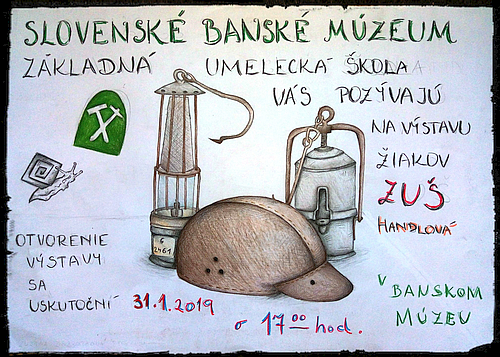 SLOVENSKÉ BANSKÉ MÚZEUM
ZÁKLADNÁ UMELECKÁ ŠKOLA
VÁS POZÝVAJÚ
NA VÝSTAVU
ŽIAKOV
ZUŠ
HANDLOVÁ
V BANSKOM
MÚZEU
OTVORENIE
VÝSTAVY
SA
USKUTOČNÍ 31.1.2019
o 17 00 hod.
6
2461